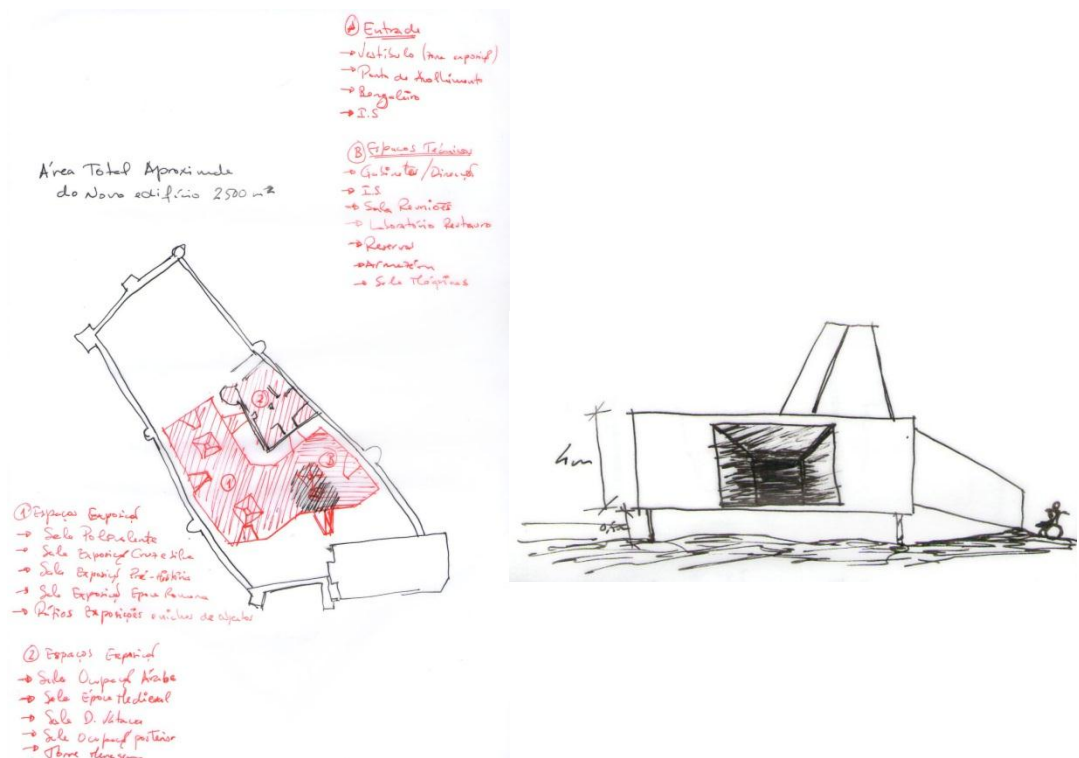 Ⓐ Entrada
→ Vestíbulo (zona exposiçf)
→ Ponto de Acolhimento
→ Bengaleiro
→ I.S
Ⓑ Espaços Técnicos
→ Gabinetes/Direcçf
→ I.S
→ Sala Reuniões
→ Laboratório Restauro
→ Reservas
→ Armazém
→ Sala Máquinas
Área Total Aproximada
do Novo edifício 2500 m²
① Espaços Exposiçf
→ Sala Polivalente
→ Sala Exposiçf
→ Sala Exposiçf Pré-História
→ Sala Exposiçf Época Romana
→ Pátios Exposições e nichos de objectos
② Espaços Exposiçf
→ Sala Ocupaçf Árabe
→ Sala Época Medieval
→ Sala D. Vataça
→ Sala Ocupaçf posterior
→ Torre Menagem
①
②
Ⓑ
4m
0,50